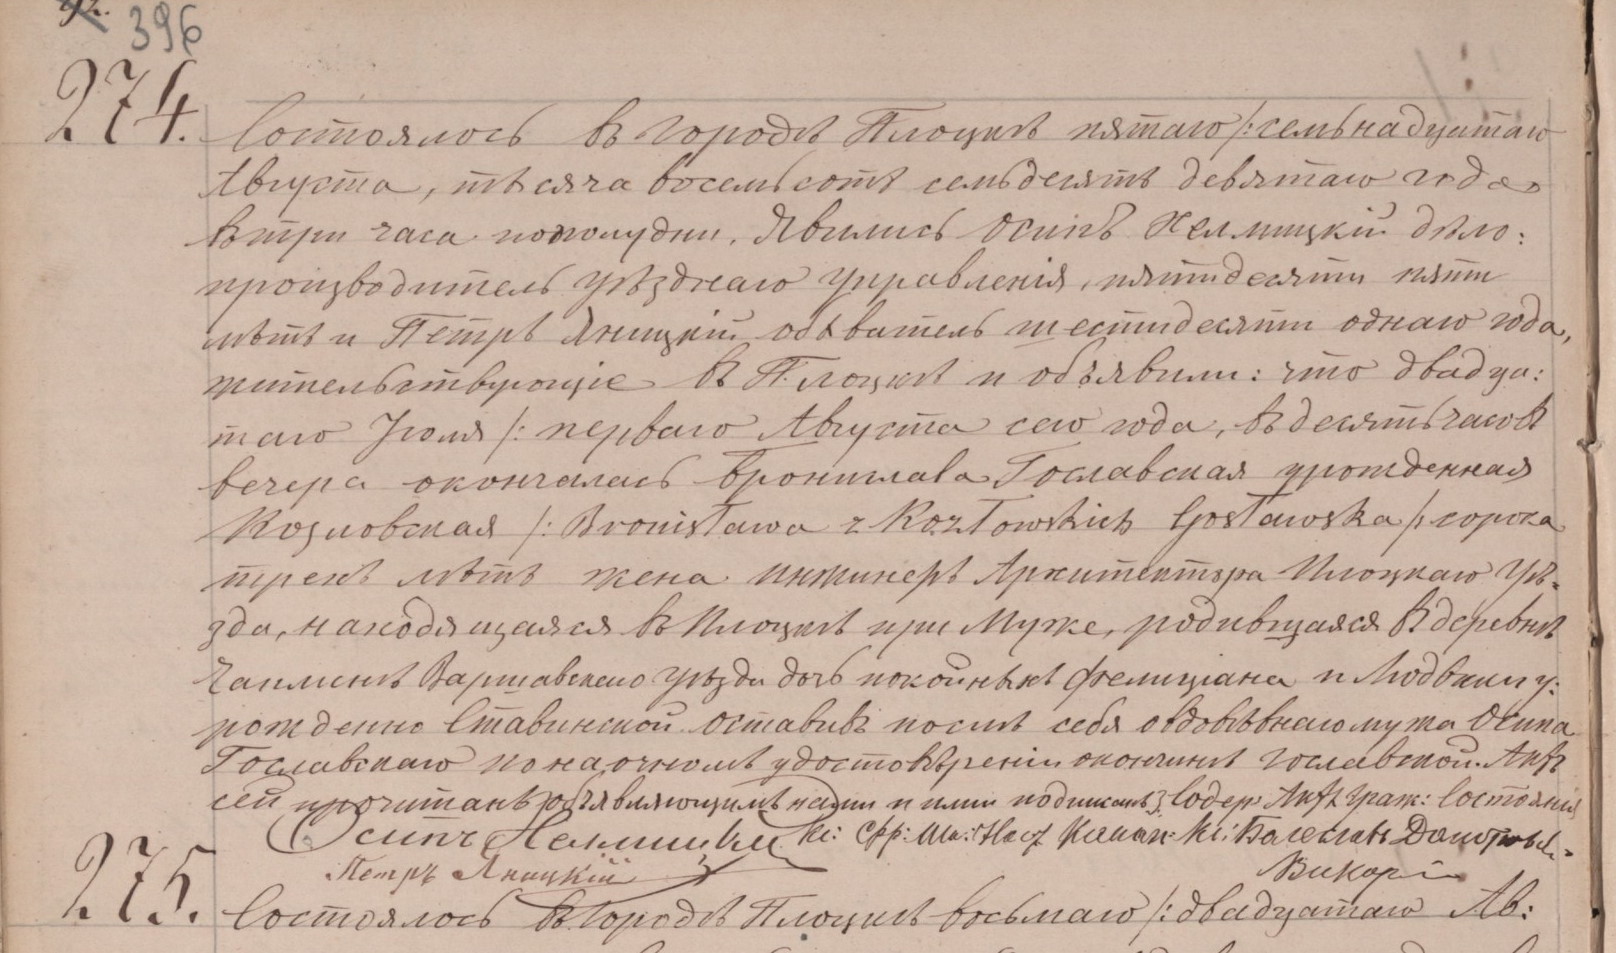 396
274.
Состоялось въ городѣ Плоцкѣ пятаго /: семьнадцатаго
Августа, тысяча восемьсотъ семьдесятъ девятаго года
въ три часа пополудни. Явились Осипъ Хелмицкій дѣло:
производитель уѣзднаго управленія, пятидесяти пяти
лѣтъ и Петръ Яницкій обыватель шестидесяти однаго года,
жительствующіе въ Плоцкѣ и объявили: что двадца:
таго Іюля /: перваго Августа сего года, въ десять часовъ
вечера скончалась Брониславa Гославская урожденная
Козловская /: Bronisława z Kozłowskich Gosławska /: сорока
трехъ лѣтъ жена инжинеръ Архитектора Плоцкаго Уѣ-
зда, находящаяся въ Плоцкѣ при Муже, родившаяся въ деревнѣ
Варшавскаго уѣзда дочь покойныхъ Фелиціана и Людвики у:
рожденно Ставинской оставивъ послѣ себя овдовѣвшаго мужа Осипа
Гославскаго по наочномъ удостовѣреніи о кончинѣ Гославской. Актъ
сей прочитанъ объявляющимъ нами и ими подписанъ, Содер: Акты Граж: Состоянія
Осипъ Хелмицкій Кс: Болеславъ
Петръ Яницкій Викарій
275.
Состоялось въ Городѣ Плоцкѣ восьмаго /: двадцатаго Ав: